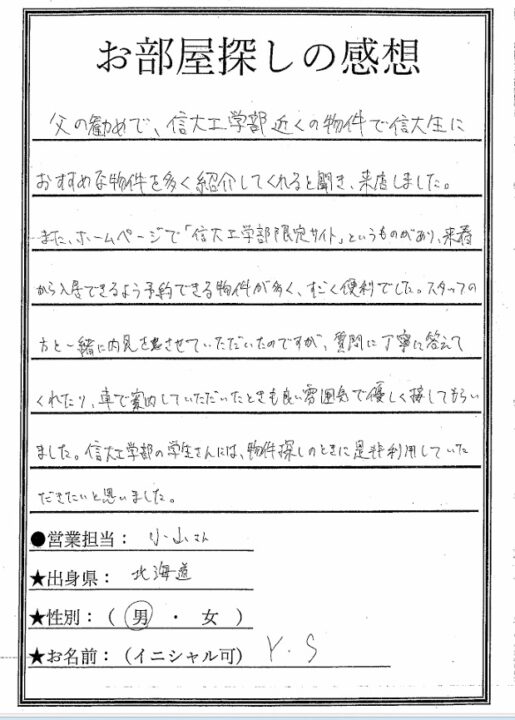 お部屋探しの感想
父の勧めで、信大工学部近くの物件で信大生に
おすすめな物件を多く紹介してくれると聞き、来店しました。
また、ホームページで「信大工学部限定サイト」というものがあり、来春
から入居できるよう予約できる物件が多く、すごく便利でした。スタッフの
方と一緒に内見をさせていただいたのですが、質問に丁寧に答えて
くれたり、車で案内していただいたときも良い雰囲気で優しく接してもらい
ました。信大工学部の学生さんには、物件探しのときに是非利用していた
だきたいと思いました。
●営業担当： 小山さん
★出身県： 北海道
★性別：（ 男 ・ 女 ）
★お名前：（イニシャル可） Y.S